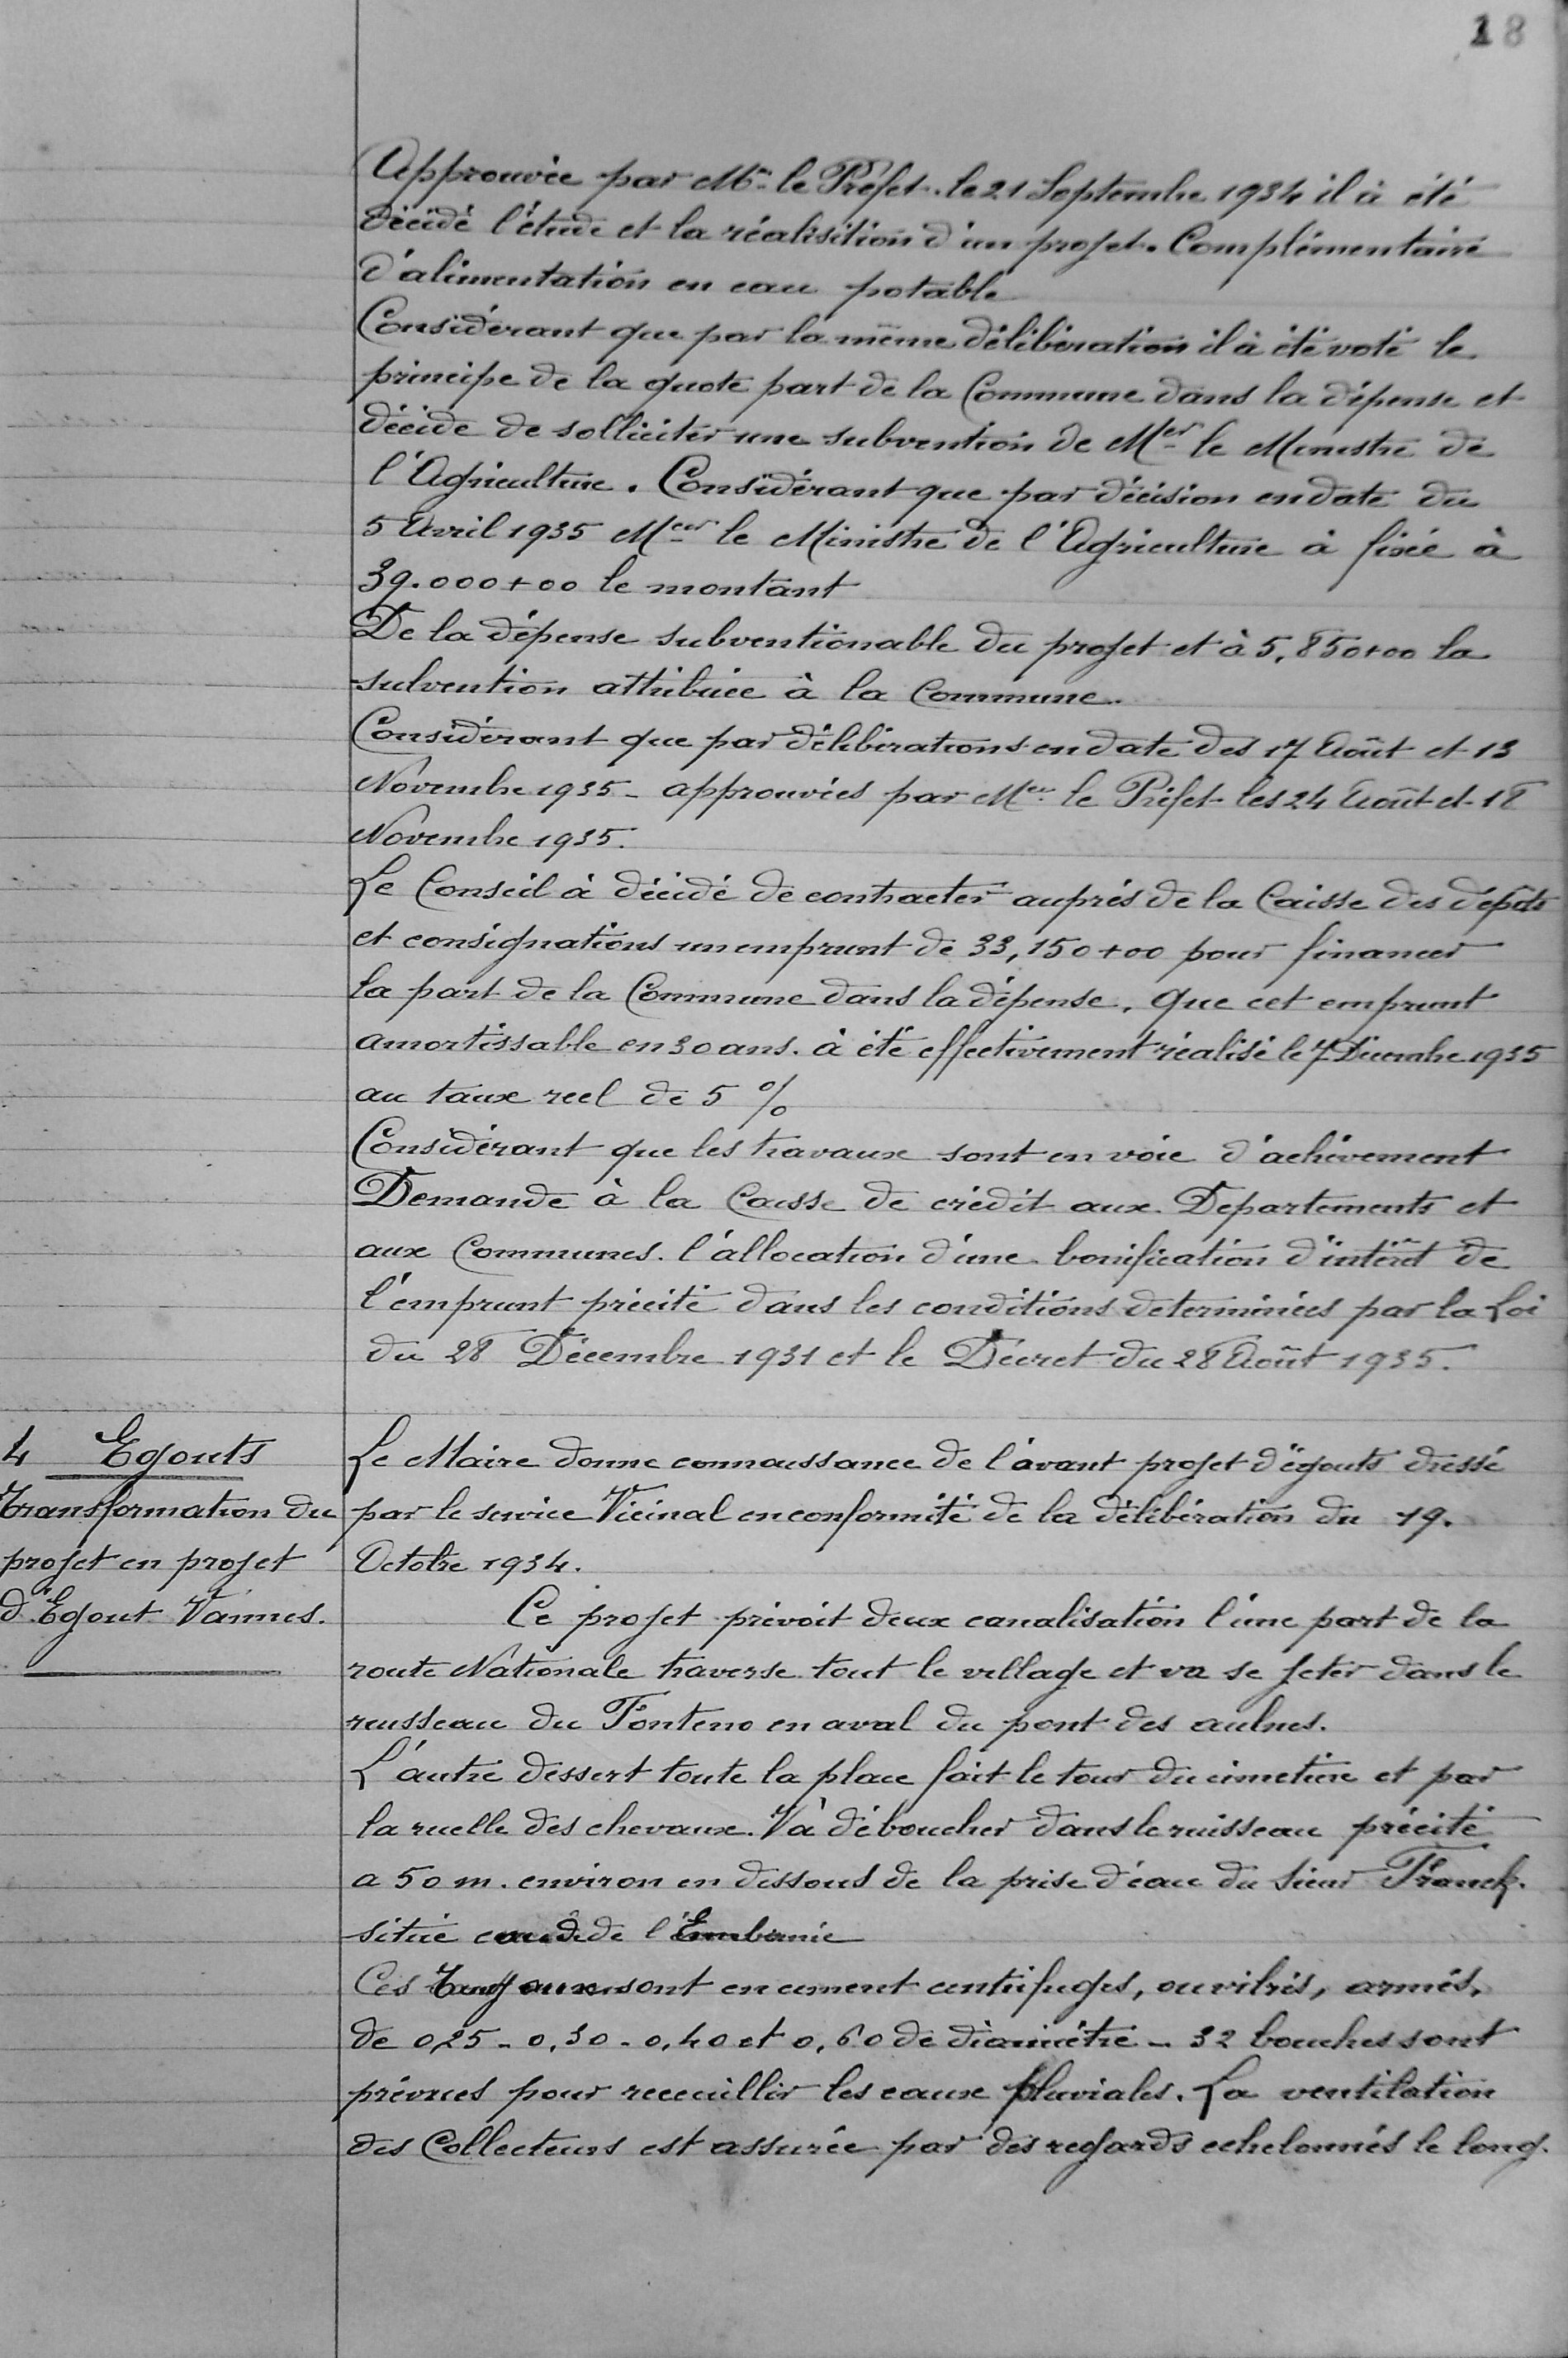 18
Approuvée par Mr le Préfet. le 21 Septembre 1934 il à été
décidé l'étude et la réalisition d'un projet. Complémentaire
d'alimentation en eau potable
Considérant que par la même délibération il à été voté le
principe de la quote part de la Commune dans la dépense et
décide de solliciter une subvention de Mer le Ministre de
l'Agriculture. Considérant que par décision en date du
5 Avril 1935 Meur le Ministre de l'Agriculture à fixée à
39.000+00 le montant
De la dépense subventionable du projet et à 5,850+00 la
subvention attribuée à la Commune.
Considérant que par délibérations en date des 17 Août et 13
Novembre 1935 - approuvées par Meur le Préfet les 24 Août et 18
Novembre 1935.
Le Conseil à décidé de contracter auprés de la Caisse des dépôts
et consignations un emprunt de 33,150+00 pour financer
la part de la Commune dans la dépense, que cet emprunt
amortissable en 30 ans. à été effectivement réalisé le 7 Décembre 1935
au taux reel de 5 %
Considérant que les travaux sont en voie d'achèvement
Demande à la Caisse de crédit aux Departements et
aux Communes. l'allocation d'une bonification d'intérêt de
l'emprunt précité dans les conditions determinées par la Loi
du 28 Décembre 1931 et le Décret du 28 Août 1935.
4 Egouts
Transformation du
projet en projet
d'Egout Vannes.
Le Maire donne connaissance de l'avant projet d'égouts dressé
par le service Vicinal en conformité de la délibération du 19.
Octobre 1934.
Ce projet prévoit deux canalisation l'une part de la
route Nationale traverse tout le village et va se jeter dans le
ruisseau du Fonteno en aval du pont des aulnes.
L'autre dessert toute la place fait le tour du cimetière et par
la ruelle des chevaux. Và déboucher dans le ruisseau précité
a 50 m. environ en dessous de la prise d'eau du sieur Franck.
situé de l'
Ces Tuyaux sont en ciment centrifuges, ou vibrés, armés,
de 0,25 - 0,30 - 0,40 et 0,60 de diamètre - 32 bouches sont
prévues pour receuillir les eaux pluviales. La ventilation
des Collecteurs est assurée par des regards echelonnés le long.